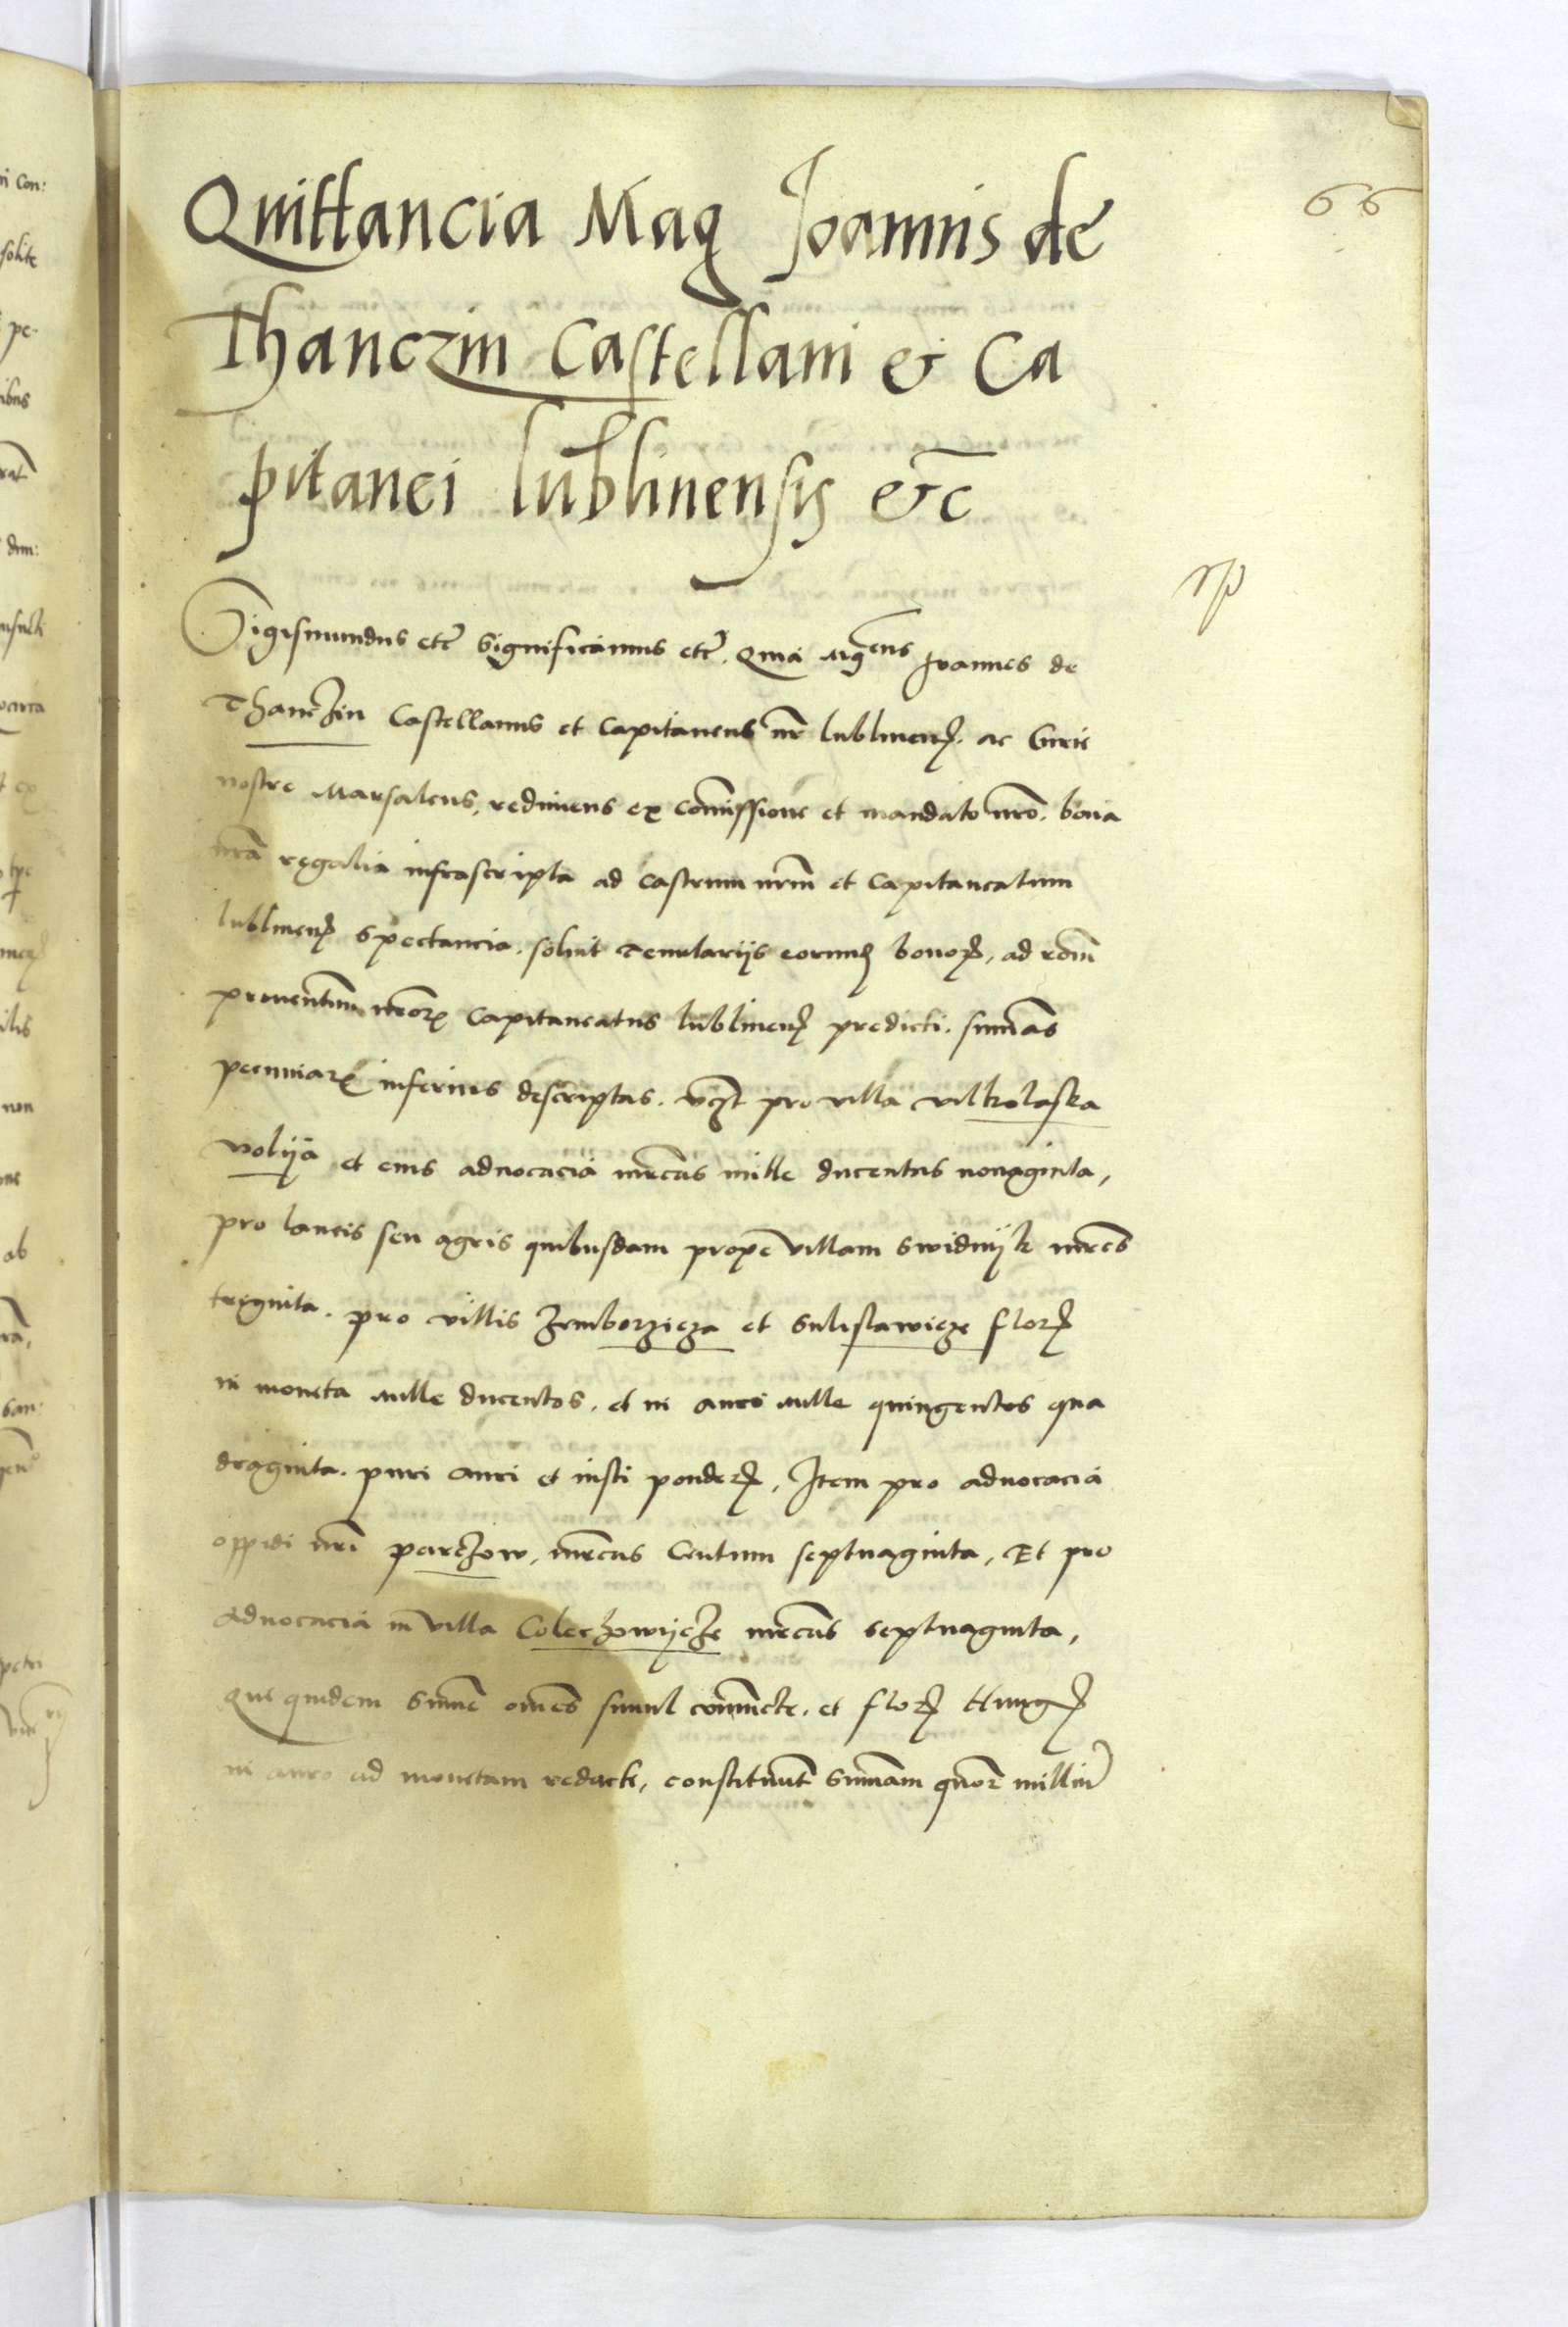 66
Quittancia Mag Joannis de
Thanczin Castellani & Ca
pitanei lublinensis &c̄
Sigismundus etc̄ Significamus etc̄. Quia Mg̃cus Joannes de
Thanczin Castellanus et Capitaneus nr̄ lublinen̄. ac Curie
nostre Marsalcus, redimens ex com̄issione et mandato nr̄o. bona
nr̄a regalia infrascripta ad castrum nr̄m et Capitaneatum
lublinen̄ spectancia. soluit Tenutarijs eorund̄ bonoꝝ, ad rōm̄
prouentuum nr̄oꝝ Capitaneatus lublinen̄ predicti. sum̄as
pecuniaꝝ inferius descriptas. vz̄t pro villa vilkolaska
volija et eius aduocacia mr̄cas mille ducentas nonaginta,
pro laneis seu agris quibusdam prope villam Swidnijk mr̄cas
triginta. pro villis Zemborzicza et Sulislawicze flor̄
in moneta mille ducentos. et in auro mille quingentos qua
draginta. puri auri et iusti ponder̄, Item pro aduocacia
oppidi nr̄i parczow, mr̄cas Centum septuaginta, Et pro
aduocacia in villa Colechowijcze mr̄cas septuaginta,
Que quidem Sum̄e om̄es simul coniuncte. et flor̄ Hunḡ
in auro ad monetam redacte, constituunt Sum̄am q̄uor milliū